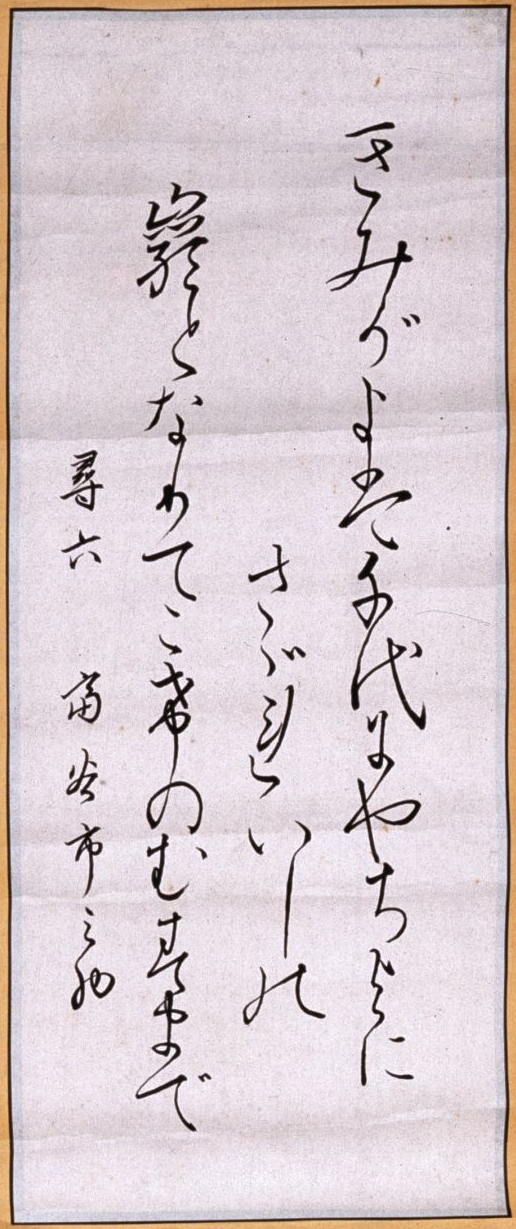 きみがよは千代にやちよに
さゞれいしの
巌となりてこけのむすまで
尋六 富谷市之助